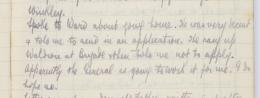 Winkley.
Spoke to Ward about going home. He was very decent
& told me to send in an application. He rang up
Waldron at Brigade who told me not to apply.
Apparently the General is going to work it for me. I do
hope so.